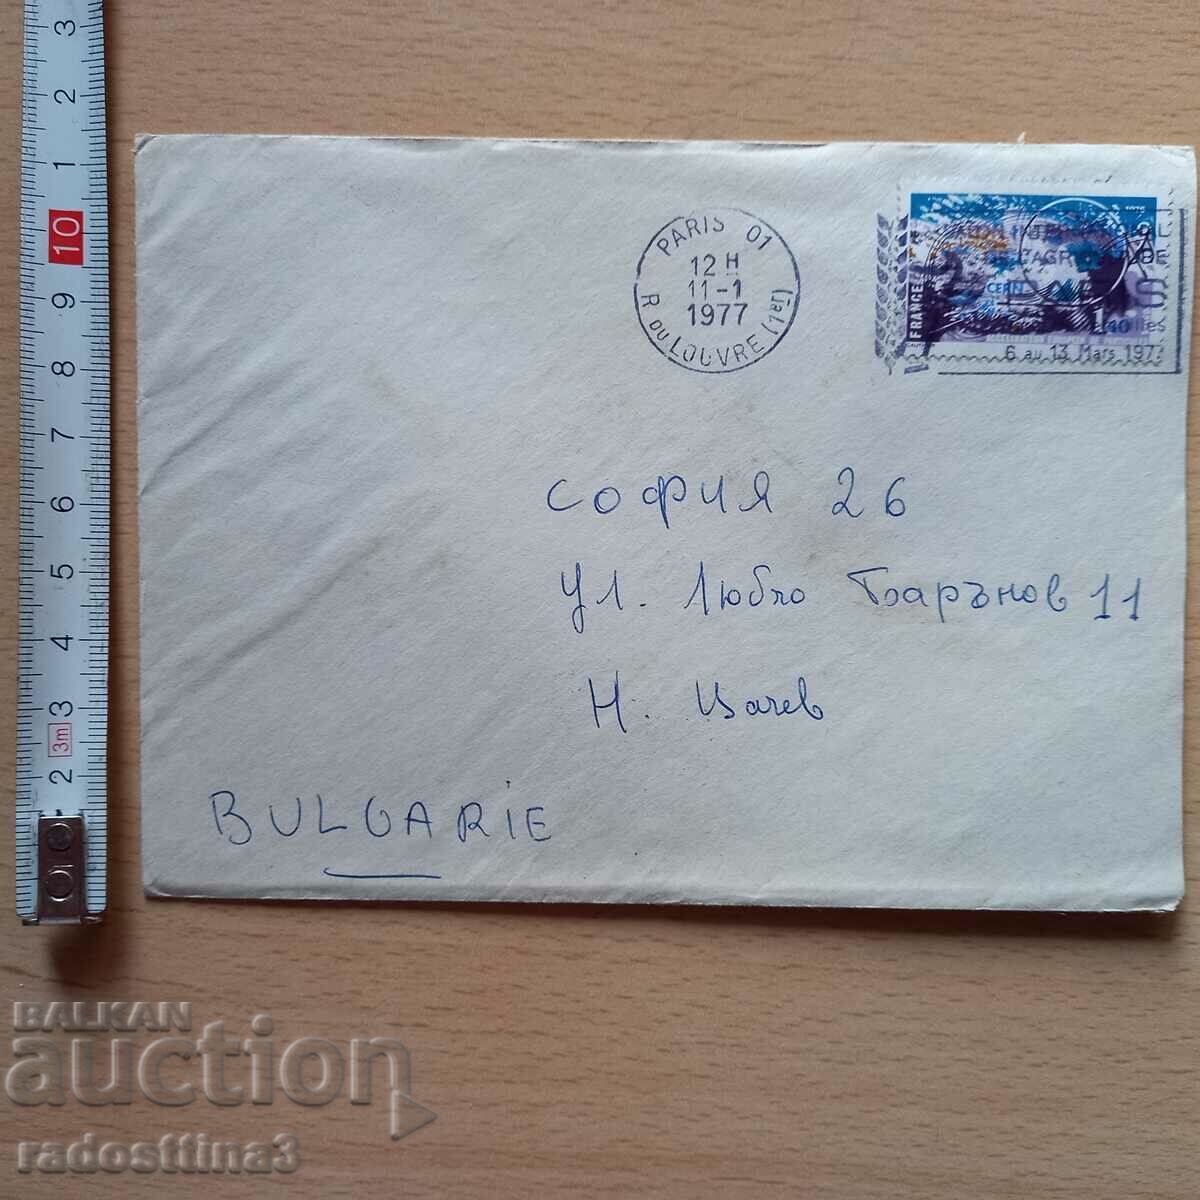 PARIS 01
12 H
11-1
1977
R. DU LOUVRE (1er)
INTERNATIONAL
DE L'AGRICULTURE
PARIS
6 au 13 Mars 197
FRANCE
CERN
1,40
СОФИЯ 26
Ул. Любчо Барънов 11
Н. Цачев
BULGARIE
3
2
1
10
9
8
7
6
5
4
3
3m
2
BALKAN
auction
radosttina3